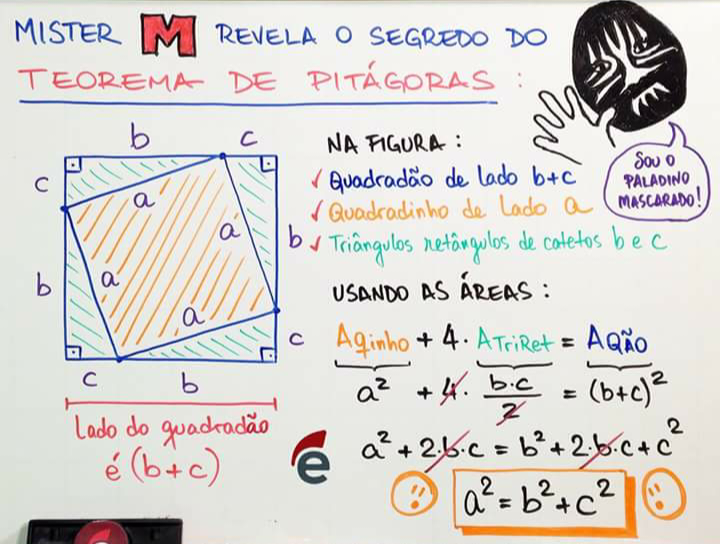 MISTER M REVELA O SEGREDO DO
TEOREMA DE PITÁGORAS:
b c
c
a
a
b
b
a
a
c
c b
Lado do quadradão
é (b+c)
NA FIGURA:
✓ Quadradão de lado b+c
✓ Quadradinho de Lado a
✓ Triângulos retângulos de catetos b e c
SOU O
PALADINO
MASCARADO!
USANDO AS ÁREAS:
AQinho + 4. ATriRet = AQÃO
a² + 4. b.c/2 = (b+c)²
a² + 2.b.c = b² + 2.b.c + c²
a² = b² + c²
e